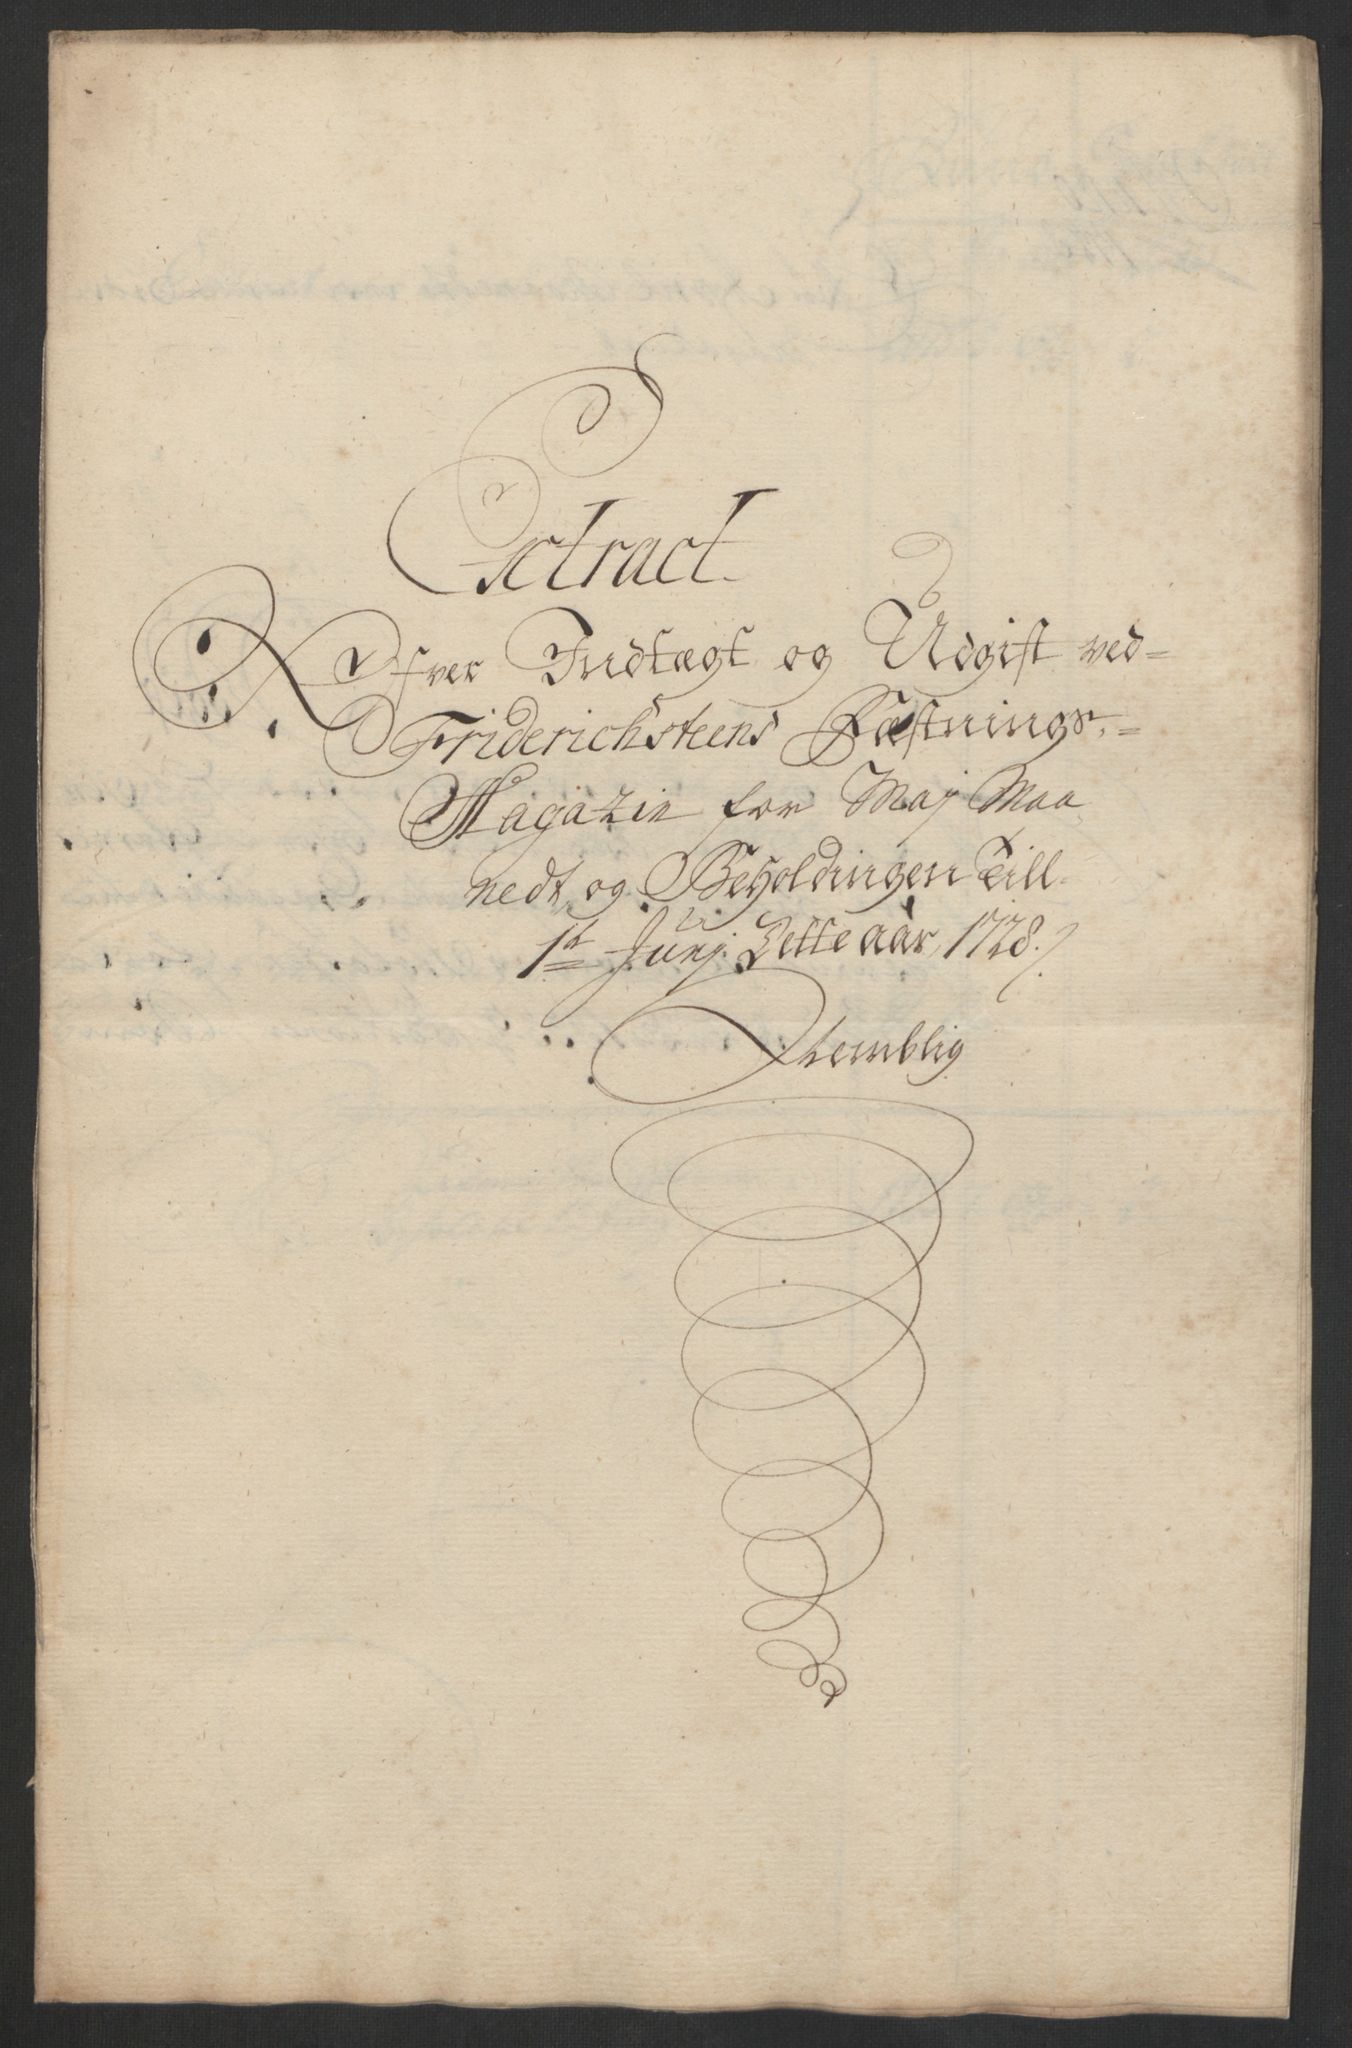 Extract
Ofver Indtægt og Udgift ved=
Friderichsteens Fæstnings=
Magazin for Maj Maa
nedt og Beholdingen till
1st Junj. Dette aar, 1728.